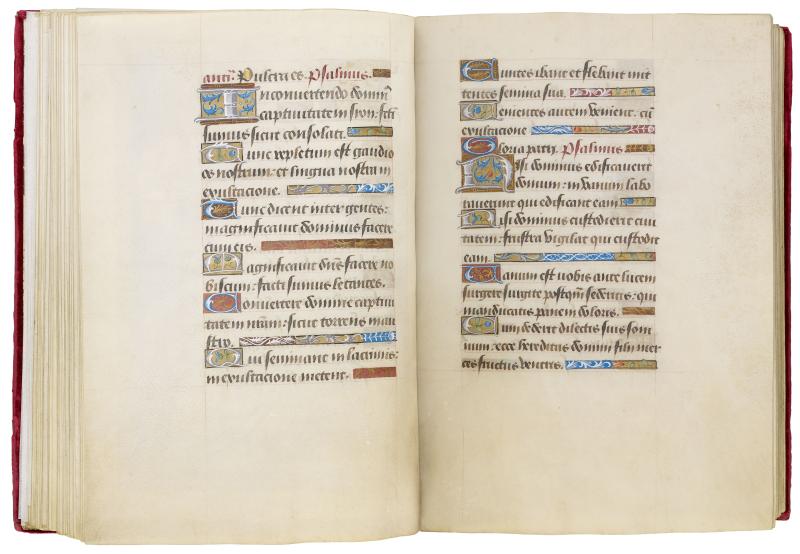 antᵃ. Pulcra es. Psalmus.
In convertendo domin̄
captivitatem sion: fcti
sumus sicut consolati.
Tunc repletum est gaudio
os nostrum: et lingua nostra in
exultacione.
Tunc dicent inter gentes:
magnificavit dominus facere
cum eis.
Magnificavit dn̄s facere no
biscum: facti sumus letantes.
Convertere domine captivi
tatem nr̄am: sicut torrens in au
stro.
Qui seminant in lacrimis:
in exultacione metent.
Euntes ibant et flebant mit
tentes semina sua.
Venientes autem venient: cū
exultacione
Gloria patri. Psalmus
Nisi dominus edificaverit
domum: in vanum labo
raverunt qui edificant eam
Nisi dominus custodierit civi
tatem: frustra vigilat qui custodit
eam.
Vanum est vobis ante lucem
surgere surgite postqm̄ sederitis: qui
manducatis panem doloris.
Cum dederit dilectis suis som
num: ecce hereditas domini filii mer
ces fructus ventris.